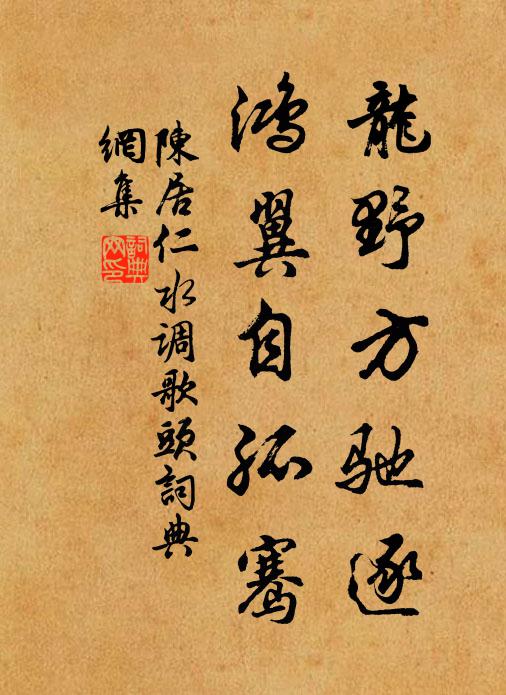 龍野方驰逐
鴻翼自孤騫
陳居仁水调歌頭詞典
網集
詞典
网印